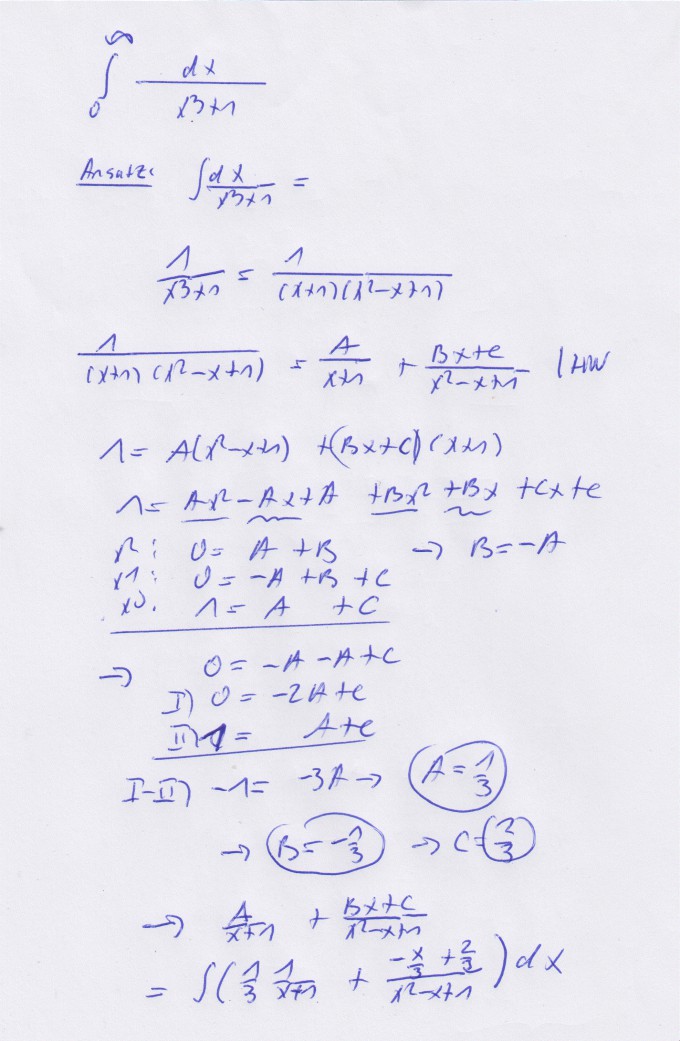 ∫₀^∞ dx/(x³+1)
Ansatz: ∫ dx/(x³+1) =
1/(x³+1) = 1/((x+1)(x²-x+1))
1/((x+1)(x²-x+1)) = A/(x+1) + (Bx+C)/(x²-x+1) | HN
1 = A(x²-x+1) + (Bx+C)(x+1)
1 = Ax² - Ax + A + Bx² + Bx + Cx + C
x²: 0 = A + B → B = -A
x1: 0 = -A + B + C
x0. 1 = A + C
→ 0 = -A - A + C
I) 0 = -2A + C
II) 1 = A + C
I-II) -1 = -3A → A = 1/3
→ B = -1/3 → C = 2/3
→ A/(x+1) + (Bx+C)/(x²-x+1)
= ∫( 1/3 1/(x+1) + (-x/3 + 2/3)/(x²-x+1) ) dx